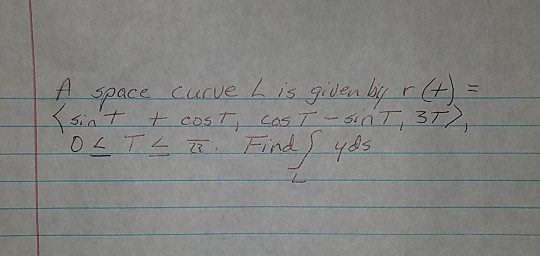 A space curve L is given by r(t) =
⟨sin t + cos T, cos T - sin T, 3T⟩,
0 ≤ T ≤ π. Find ∫ y ds
L